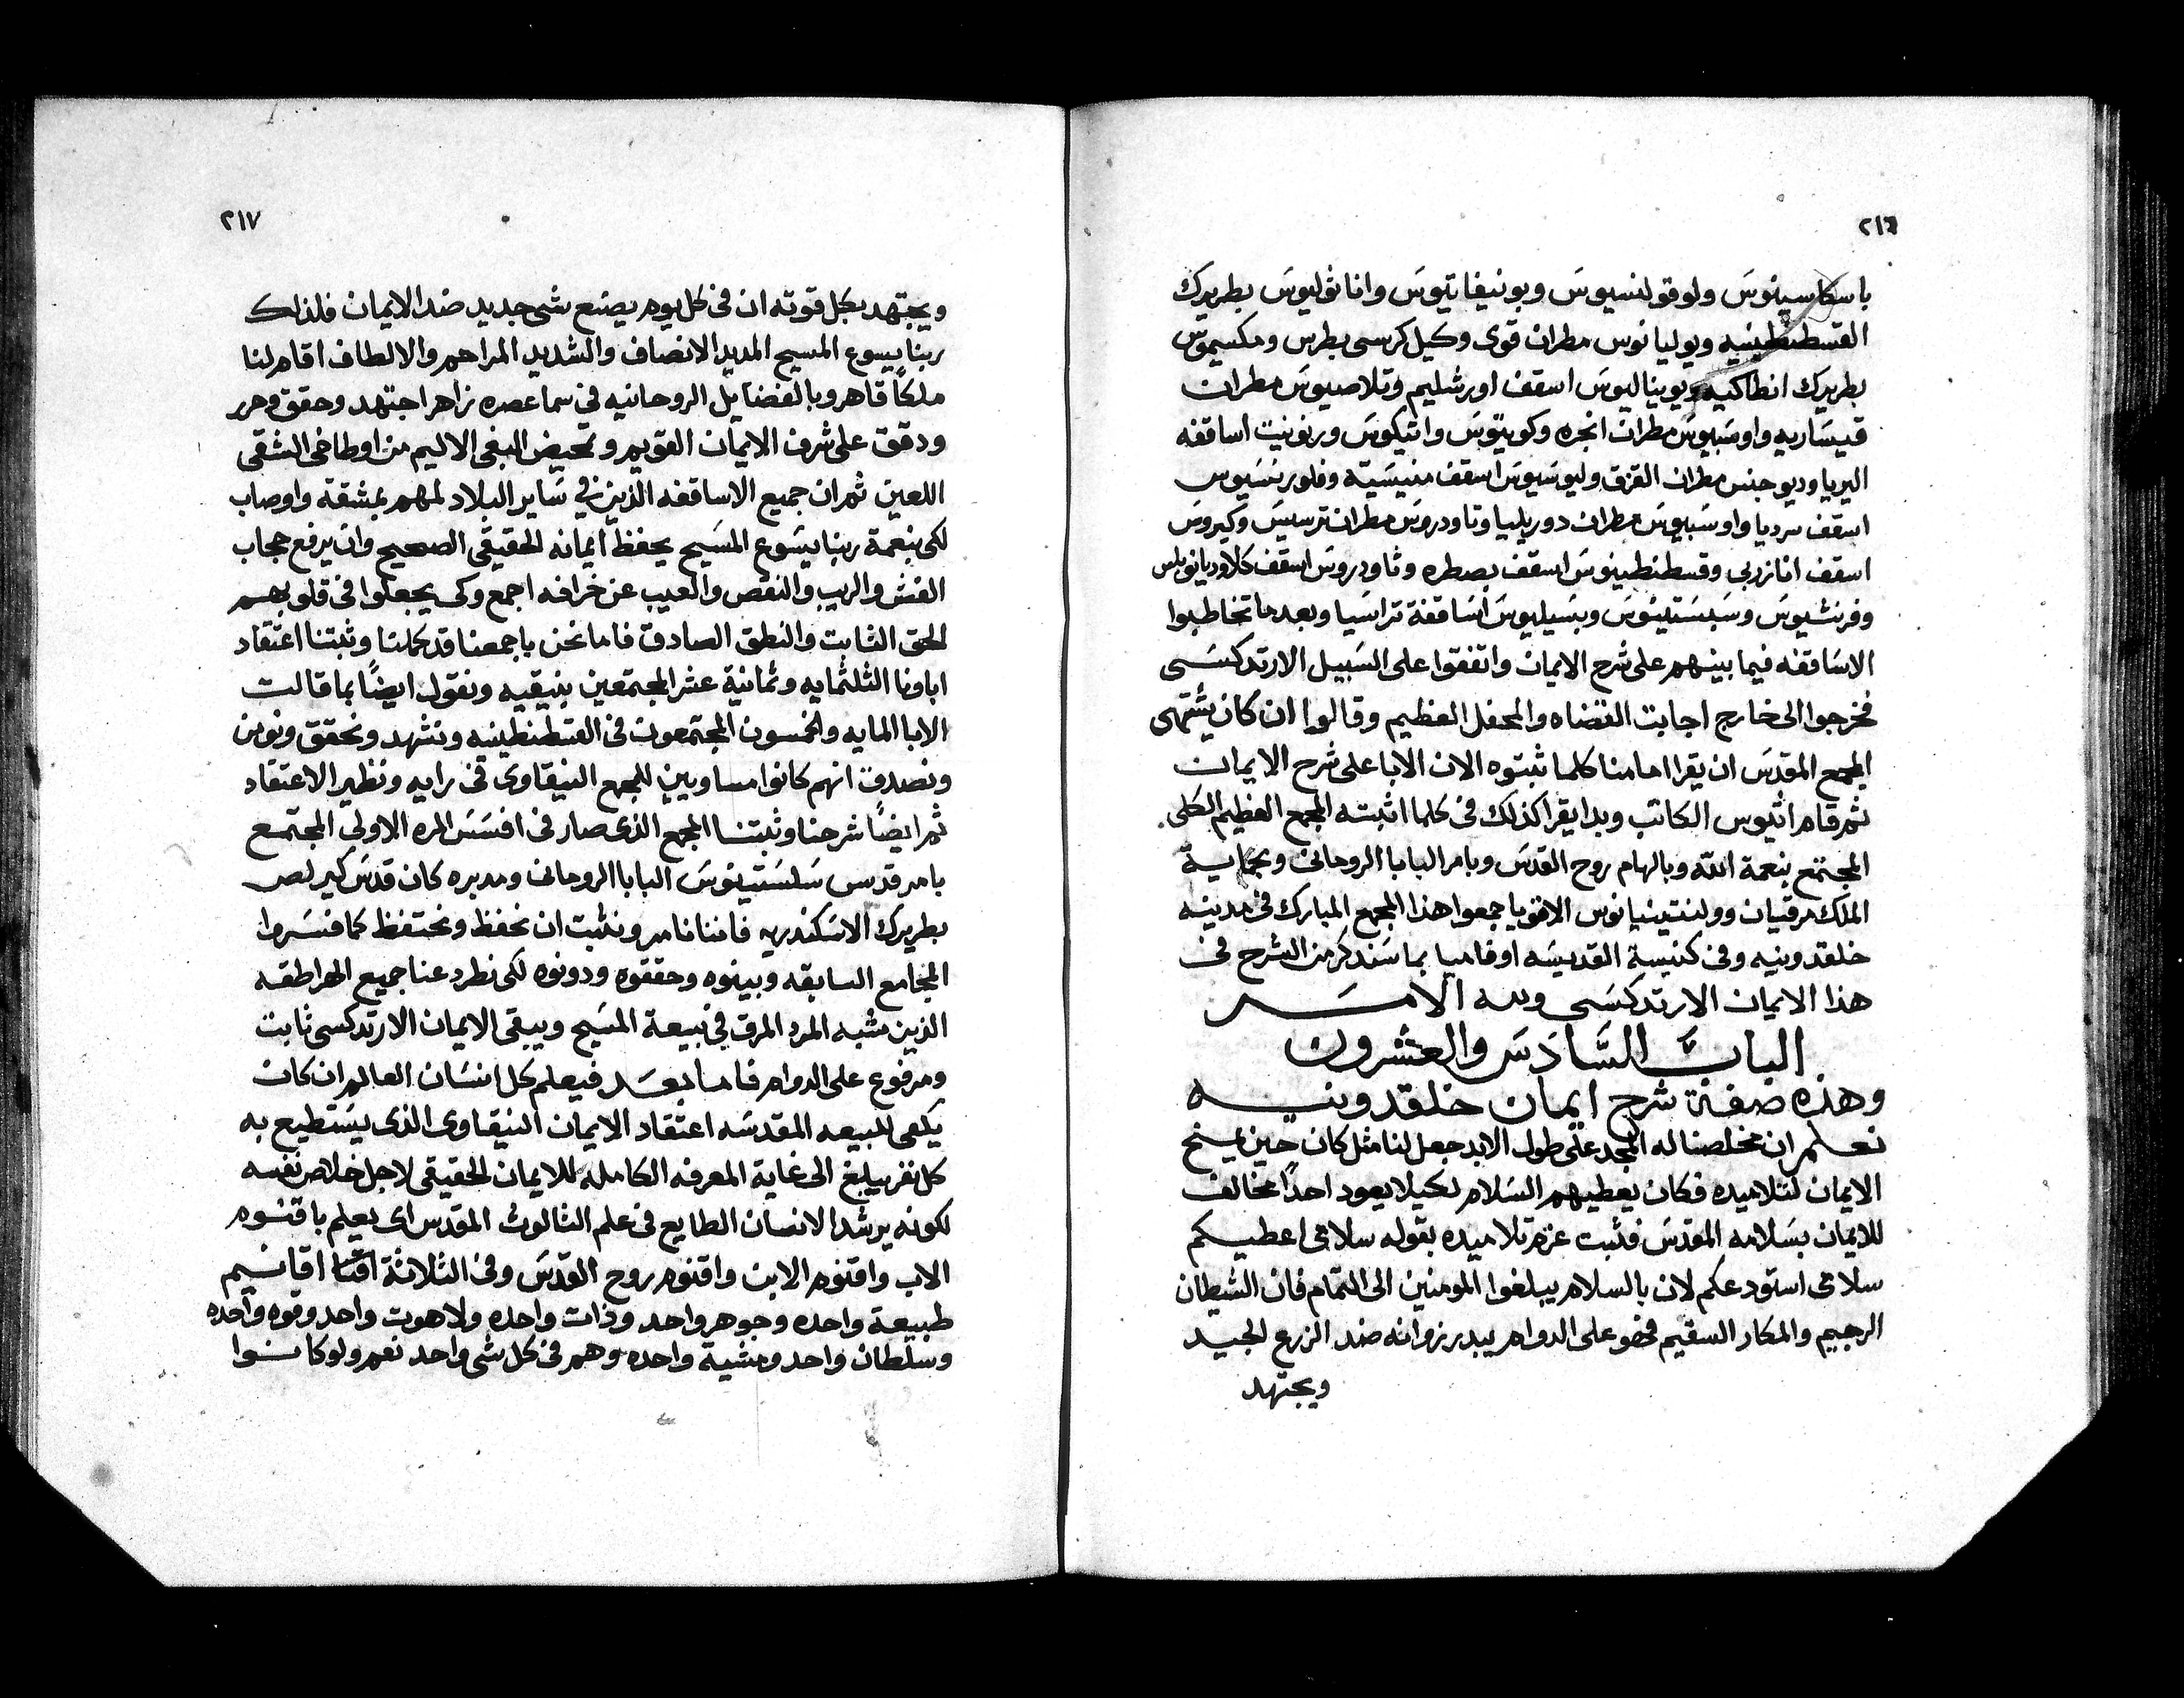 ٢١٦
باسكاسينوس ولوقولنسيوس وبونيفاتيوس واناثوليوس بطريرك
القسطنطينيه ويوليانوس مطران قوى وكيل كرسى بطرس ومكسيموس
بطريرك انطاكيه ويوبيناليوس اسقف اورشليم وتلاصيوس مطران
قيساريه واوسبيوس مطران انجره وكوينتوس واتيكوس ورنونيت اساقفه
اليريا وديوجنس مطران القزق وليوسيوس اسقف منيسيّه وفلورنسيوس
اسقف سرديا واوسبيوس مطران دوريليا وتاودروس مطران ترسيس وكيروس
اسقف انازربي وقسطنطينوس اسقف بصطره وثاودروس اسقف كلاوديانوبلس
وفرنشيوس وسبستينوس وبسيليوس اساقفة تراسيا وبعد ما تخاطبوا
الاساقفه فيما بينهم على شرح الايمان واتفقوا على السبيل الارتدكسى
فخرجوا الى خارج اجابت القضاه والمحفل العظيم وقالوا ان كان يشتهى
المجمع المقدس ان يقرا امامنا كلما ثبتوه الان الابا على شرح الايمان
ثم قام اتيوس الكاتب وبدا يقرا كذلك فى كلما اثبته المجمع العظيم الكلى
المجتمع بنعمة الله وبالهام روح القدس وبامر البابا الروحانى وبحماية
الملك مرقيان وولنتينيانوس الاقويا جمعوا هذا المجمع المبارك فى مدينه
خلقدونيه وفى كنيسة القديسه اوفاميا بما سنذكر من الشرح فى
هذا الايمان الارتدكسى ولله الامر
الباب السَّادَس والعشرون
وهذه صفة شرح ايمان خلقدونيه
نعلم ان مخلصنا له المجد على طول الابد جعل لنا مثل كان حين يسنح
الايمان لتلاميده فكان يعطيهم السلام لكيلا يعود احدًا مخالف
للايمان بسلامه المقدس فثبت عزم تلاميده بقوله سلامى اعطيكم
سلامى استودعكم لان بالسلام يبلغوا المومنين الى التمام فان الشيطان
الرجيم والمكار السقيم فهو على الدوام يبدر زوانه ضد الزرع الجيد
ويجتهد
٢١٧
ويجتهد بكل قوته ان فى كل يوم يصنع شى جديد ضد الايمان فلذلك
ربنا يسوع المسيح المديد الانصاف والشديد المراحم والالطاف اقام لنا
ملكًا قاهر وبالفضايل الروحانيه فى سما عصره زاهر اجتهد وحقق وحرر
ودقق على شرف الايمان القويم وتمحيض البغى الاليم من اوطاخى الشقى
اللعين ثم ان جميع الاساقفه الذين فى ساير البلاد لمهم بمشقة واوصاب
لكى بنعمة ربنا يسوع المسيح يحفظ ايمانه الحقيقى الصحيح وان يرفع حجاب
الغش والريب والنقص والعيب عن خرافه اجمع وكى يجعلوا فى قلوبهم
الحق الثابت والنطق الصادق فاما نحن باجمعنا قد كملنا وثبتنا اعتقاد
اباونا الثلثمايه وثمانية عشر المجتمعين بنيقيه ونقول ايضًا بما قالت
الابا المايه والخمسون المجتمعون فى القسطنطينيه ونشهد ونحقق ونومن
ونصدق انهم كانوا مساويين للمجمع النيقاوى فى رايه ونظير الاعتقاد
ثم ايضًا شرحنا وثبتنا المجمع الذى صار فى افسس المره الاولى المجتمع
بامر قدس سلستينوس البابا الروحانى ومدبره كان قدس كيرلص
بطريرك الاسكندريه فاننا نامر ونثبت ان نحفظ ونحتفظ كما فسروا
المجامع السابقه وبينوه وحققوه ودونوه لكى نطرد عنا جميع الهراطقه
الذين مشبه المرد المرق فى بيعة المسيح ويبقى الايمان الارتدكسى ثابت
ومرفوع على الدوام فاما بعد فيعلم كل انسان العالم ان كان
يكفى للبيعه المقدسه اعتقاد الايمان النيقاوى الذى يستطيع به
كل نفر يبلغ الى غاية المعرفه الكامله للايمان الحقيقى لاجل خلاص نفسه
لكونه يرشد الانسان الطايع فى علم الثالوث المقدس اى يعلم باقنوم
الاب واقنوم الابن واقنوم روح القدس وفى الثلاثة اقانيم
طبيعة واحده وجوهر واحد وذات واحده ولاهوت واحد وقوه واحده
وسلطان واحد ومشية واحده وهم فى كل شى واحد نعم ولو كانوا